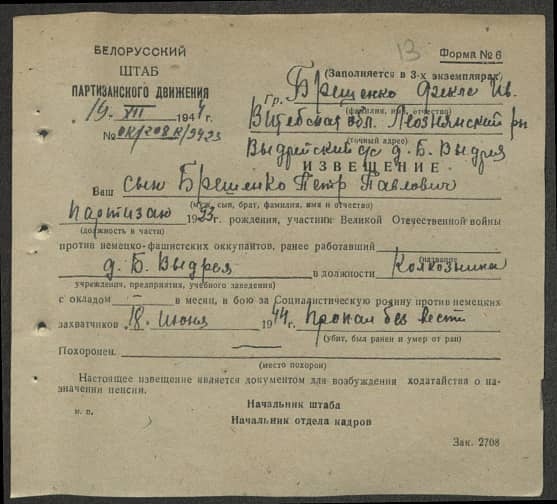 13
БЕЛОРУССКИЙ
ШТАБ
ПАРТИЗАНСКОГО ДВИЖЕНИЯ
14. VII 1944 г.
№ 0К/208 /9423
Форма № 6
(Заполняется в 3-х экземплярах)
Гр. Брещенко Фекле Ив.
(фамилия, имя, отчество)
Витебская обл. Лиознянский рн
(точный адрес)
Выдрейский с/с д. Б. Выдрея
ИЗВЕЩЕНИЕ
Ваш сын Брещенко Петр Павлович
(муж, сын, брат, фамилия, имя и отчество)
партизан 1923 г. рождения, участник Великой Отечественной войны
(должность в части)
против немецко-фашистских оккупантов, ранее работавший
(название
д. Б. Выдрея в должности Колхозника
учреждения, предприятия, учебного заведения)
с окладом — в месяц, в бою за Социалистическую родину против немецких
захватчиков 18. Июня 1944 г. Пропал без вести
(убит, был ранен и умер от ран)
Похоронен —
(место похорон)
Настоящее извещение является документом для возбуждения ходатайства о на-
значении пенсии.
Начальник штаба
м. п.
Начальник отдела кадров
Зак. 2708